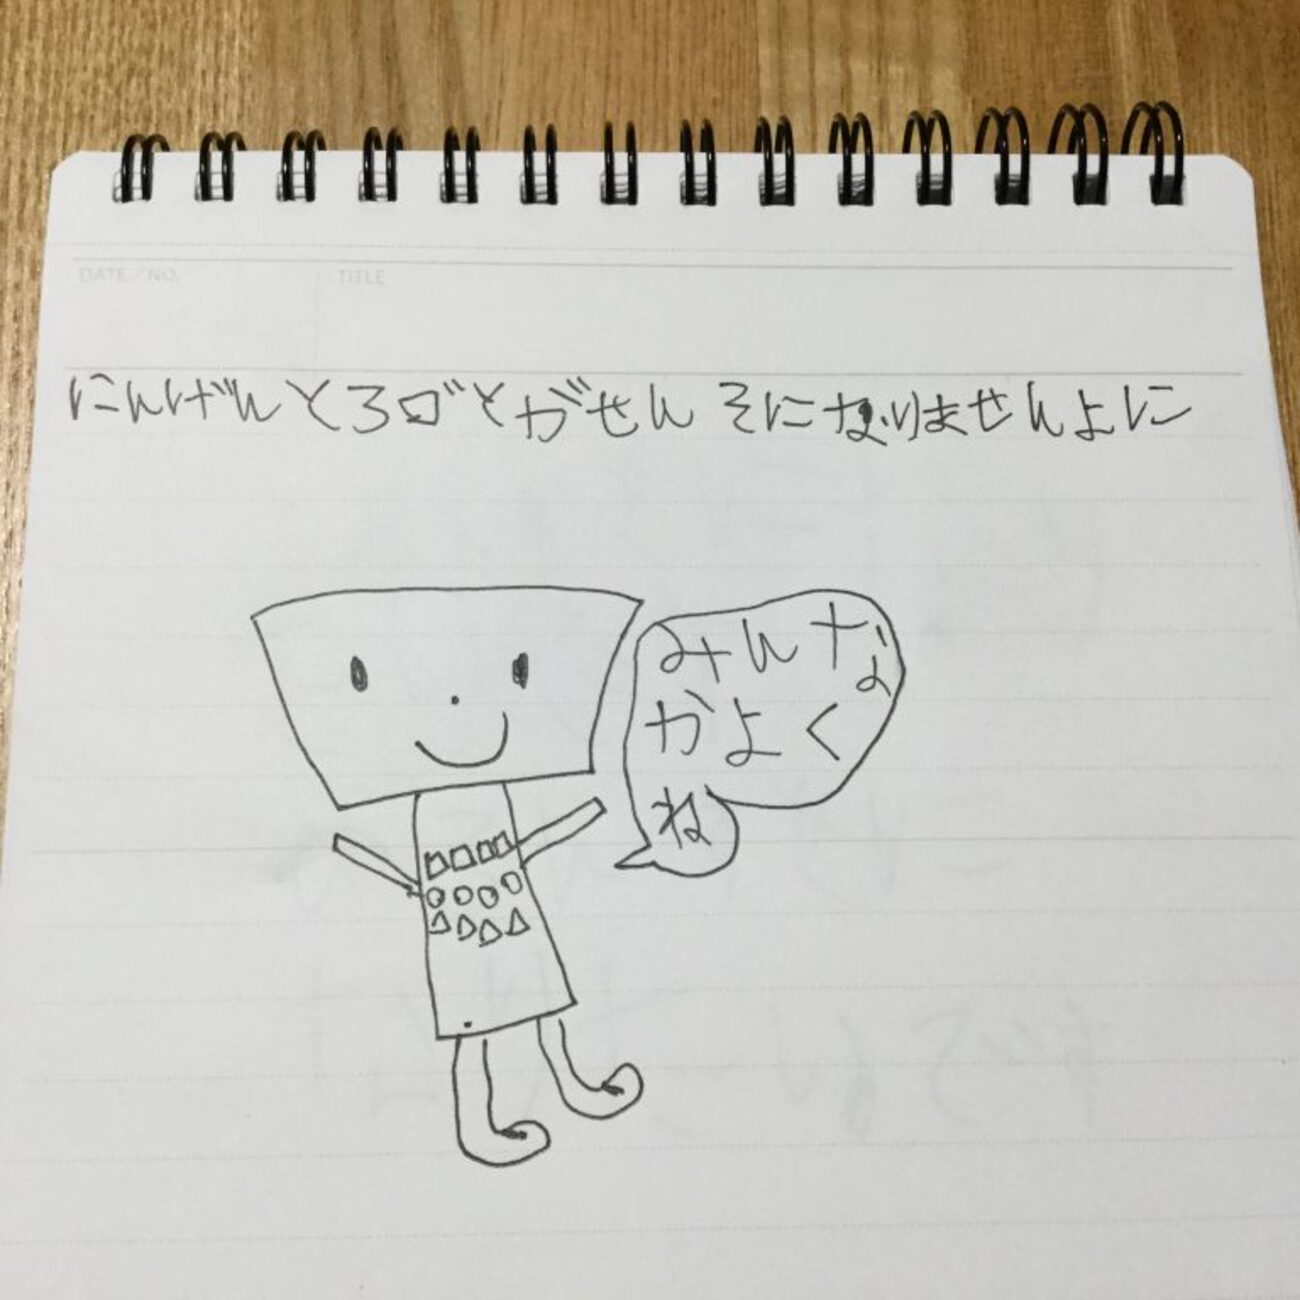 DATE / NO.
TITLE
にんげんとろぼとがせんそになりませんよに
みんな
かよく
ね